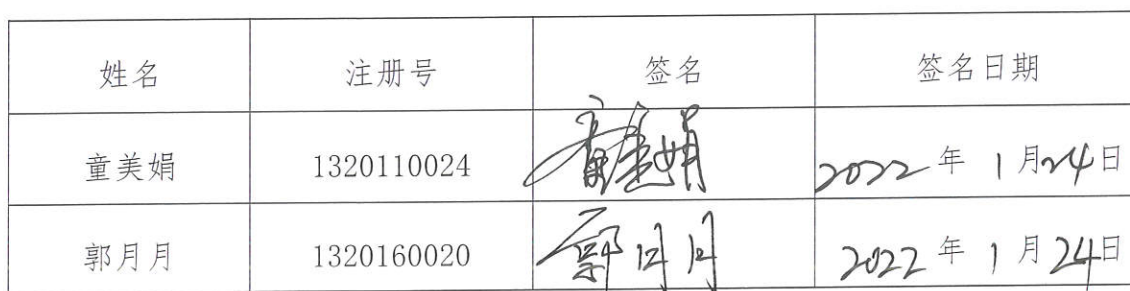 姓名 注册号 签名 签名日期
童美娟 1320110024 童美娟 2022年1月24日
郭月月 1320160020 郭月月 2022年1月24日